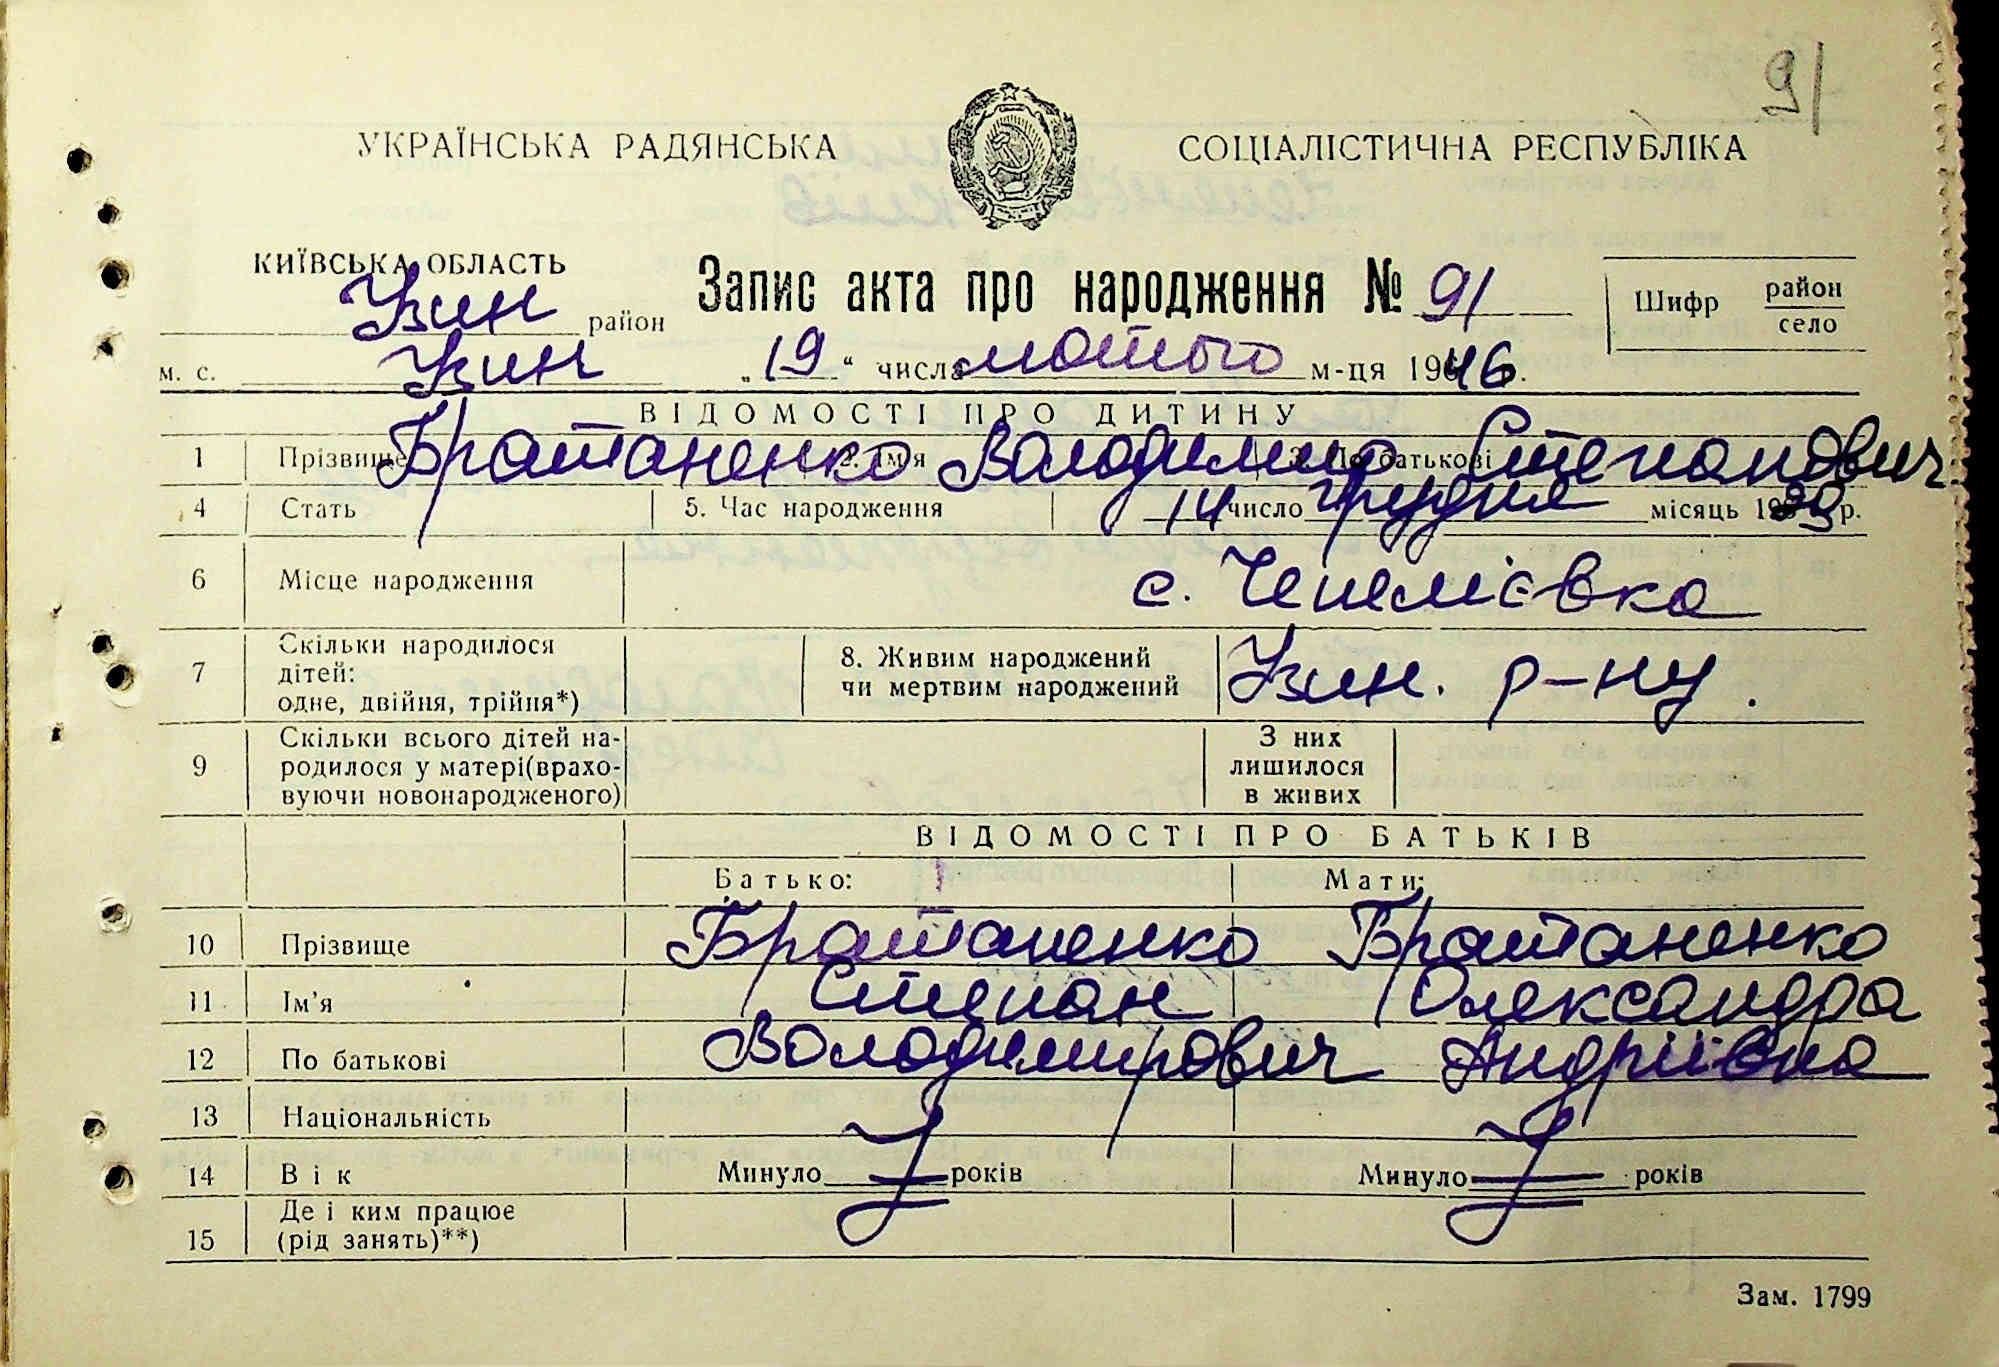 91
УКРАЇНСЬКА РАДЯНСЬКА СОЦІАЛІСТИЧНА РЕСПУБЛІКА
КИЇВСЬКА ОБЛАСТЬ
Узин район
Запис акта про народження № 91
Шифр район село
м. с. Узин „19“ числа лютого м-ця 1946 р.
ВІДОМОСТІ ПРО ДИТИНУ
1 Прізвище Братаненко 2. Ім'я Володимир 3. По батькові Степанович
4 Стать 5. Час народження 14 число грудня місяць 1939 р.
6 Місце народження с. Чепеліївка
7 Скільки народилося дітей: одне, двійня, трійня*) 8. Живим народжений чи мертвим народжений Узин. р-ну.
9 Скільки всього дітей народилося у матері(враховуючи новонародженого) З них лишилося в живих
ВІДОМОСТІ ПРО БАТЬКІВ
Батько: Мати:
10 Прізвище Братаненко Братаненко
11 Ім'я Степан Олександра
12 По батькові Володимирович Андріївна
13 Національність
14 Вік Минуло років Минуло років
15 Де і ким працює (рід занять)**)
Зам. 1799